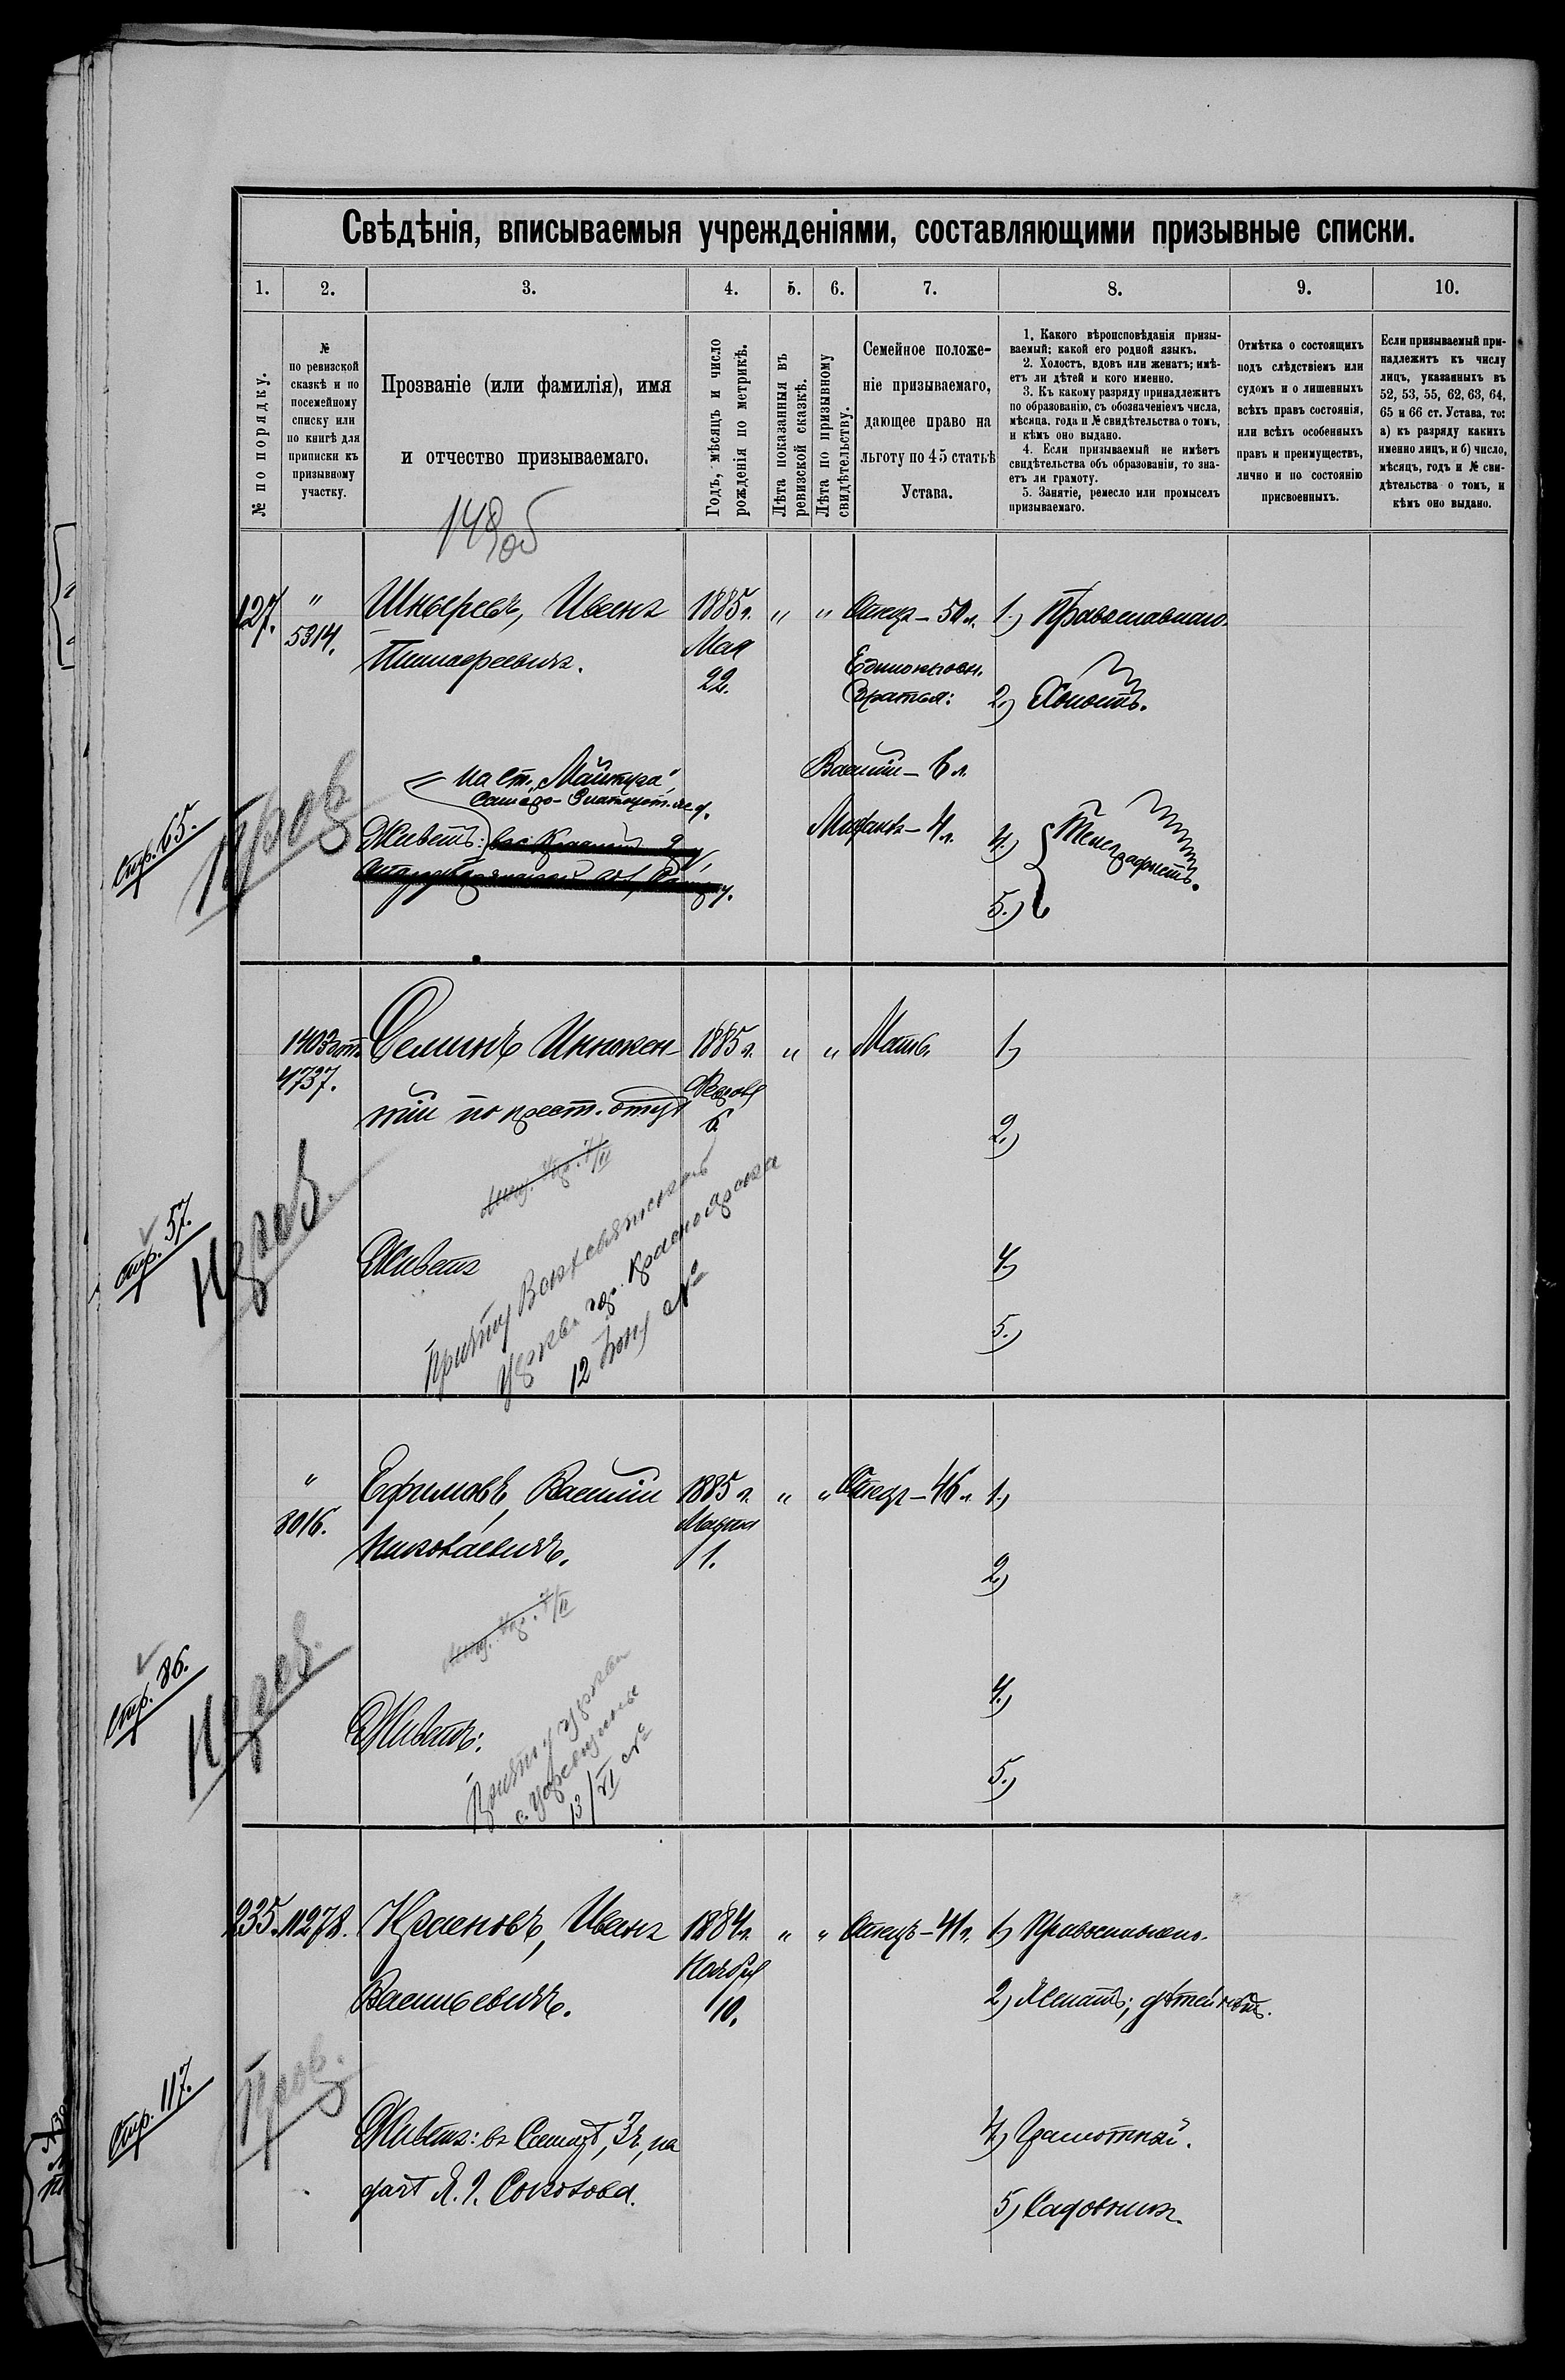 Свѣдѣнія, вписываемыя учрежденіями, составляющими призывные списки.
1. 2. 3. 4. 5. 6. 7. 8. 9. 10.
№ по порядку.
№
по ревизской
сказкѣ и по
посемейному
списку или
по книгѣ для
приписки къ
призывному
участку.
Прозваніе (или фамилія), имя
и отчество призываемаго.
Годъ, мѣсяцъ и число
рожденія по метрикѣ.
Лѣта показанныя въ
ревизской сказкѣ.
Лѣта по призывному
свидѣтельству.
Семейное положе-
ніе призываемаго,
дающее право на
льготу по 45 статьѣ
Устава.
1. Какого вѣроисповѣданія призы-
ваемый; какой его родной языкъ.
2. Холостъ, вдовъ или женатъ; имѣ-
етъ ли дѣтей и кого именно.
3. Къ какому разряду принадлежитъ
по образованію, съ обозначеніемъ числа,
мѣсяца, года и № свидѣтельства о томъ,
и кѣмъ оно выдано.
4. Если призываемый не имѣетъ
свидѣтельства объ образованіи, то зна-
етъ ли грамоту.
5. Занятіе, ремесло или промыселъ
призываемаго.
Отмѣтка о состоящихъ
подъ слѣдствіемъ или
судомъ и о лишенныхъ
всѣхъ правъ состоянія,
или всѣхъ особенныхъ
правъ и преимуществъ,
лично и по состоянію
присвоенныхъ.
Если призываемый при-
надлежитъ къ числу
лицъ, указанныхъ въ
52, 53, 55, 62, 63, 64,
65 и 66 ст. Устава, то:
а) къ разряду какихъ
именно лицъ, и б) число,
мѣсяцъ, годъ и № сви-
дѣтельства о томъ, и
кѣмъ оно выдано.
148 об
127.
"
5314.
Шныревъ, Иванъ
Тимофеевичъ.
1885 г.
Мая
22.
" "
Отецъ – 50 л.
Единокровн.
братья:
Василій – 6 л.
1.) Православнаго.
2.) Холостъ.
4.) Телеграфистъ.
5.)
на ст. "Майтуга"
Самаро-Златоуст. ж. д.
Живетъ:
Стр. 65.
Пров
4737.
Семинъ Иннокен-
тій по крест. отцу
1885 г.
6.
" "
Мать.
1)
2.)
4)
5.)
Живетъ
Причту
Церкви гор. Красноярска
12 №
Стр. 57.
Пров.
"
8016.
Ефимовъ, Василій
Николаевичъ.
1885 г.
Марта
1.
" "
Отецъ – 46 л.
1.)
2.)
4.)
5.)
Живетъ:
Причту церкви
с. Царевщины
13/VI №
Стр. 86.
Пров.
235.
11278.
Краеновъ, Иванъ
Васильевичъ.
1884 г.
Ноября
10.
" "
Отецъ – 41 л.
1) Православнаго.
2) Женатъ; дѣтей нѣтъ.
4) Грамотный.
5) Садовникъ.
Живетъ: въ Самарѣ, 3 ч., на
дачѣ Я. Г. Соколова.
Стр. 117.
Пров.